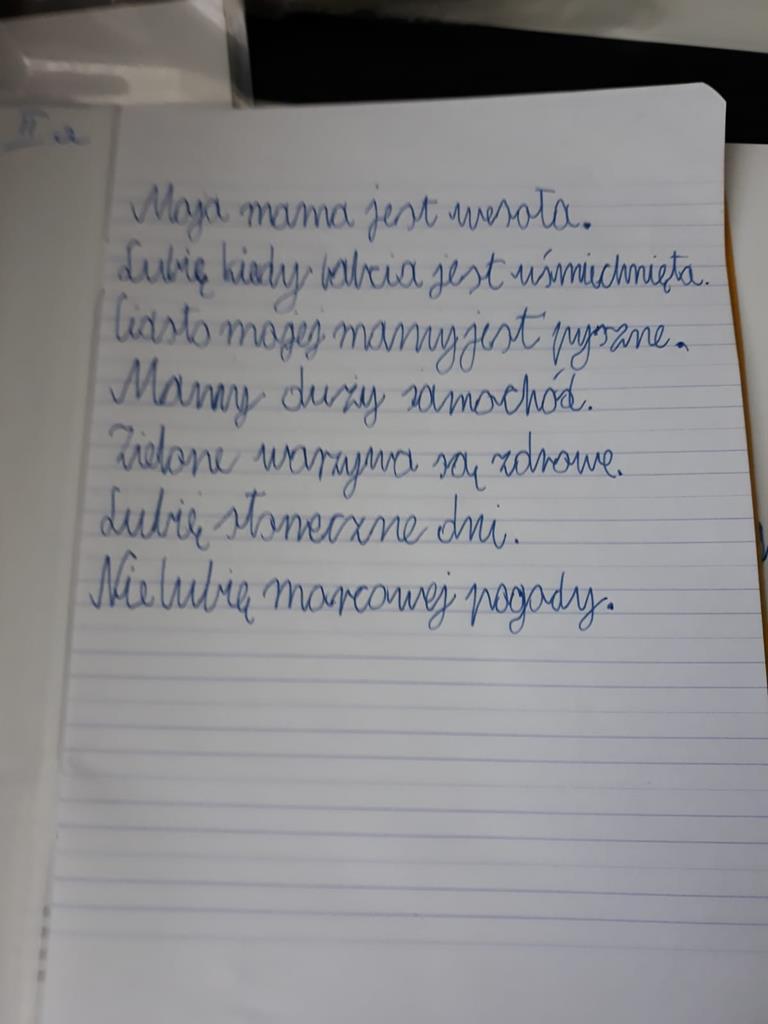 II a
Moja mama jest wesoła.
Lubię kiedy babcia jest uśmiechnięta.
Ciasto mojej mamy jest pyszne.
Mamy duży samochód.
Zielone warzywa są zdrowe.
Lubię słoneczne dni.
Nie lubię marcowej pogady.